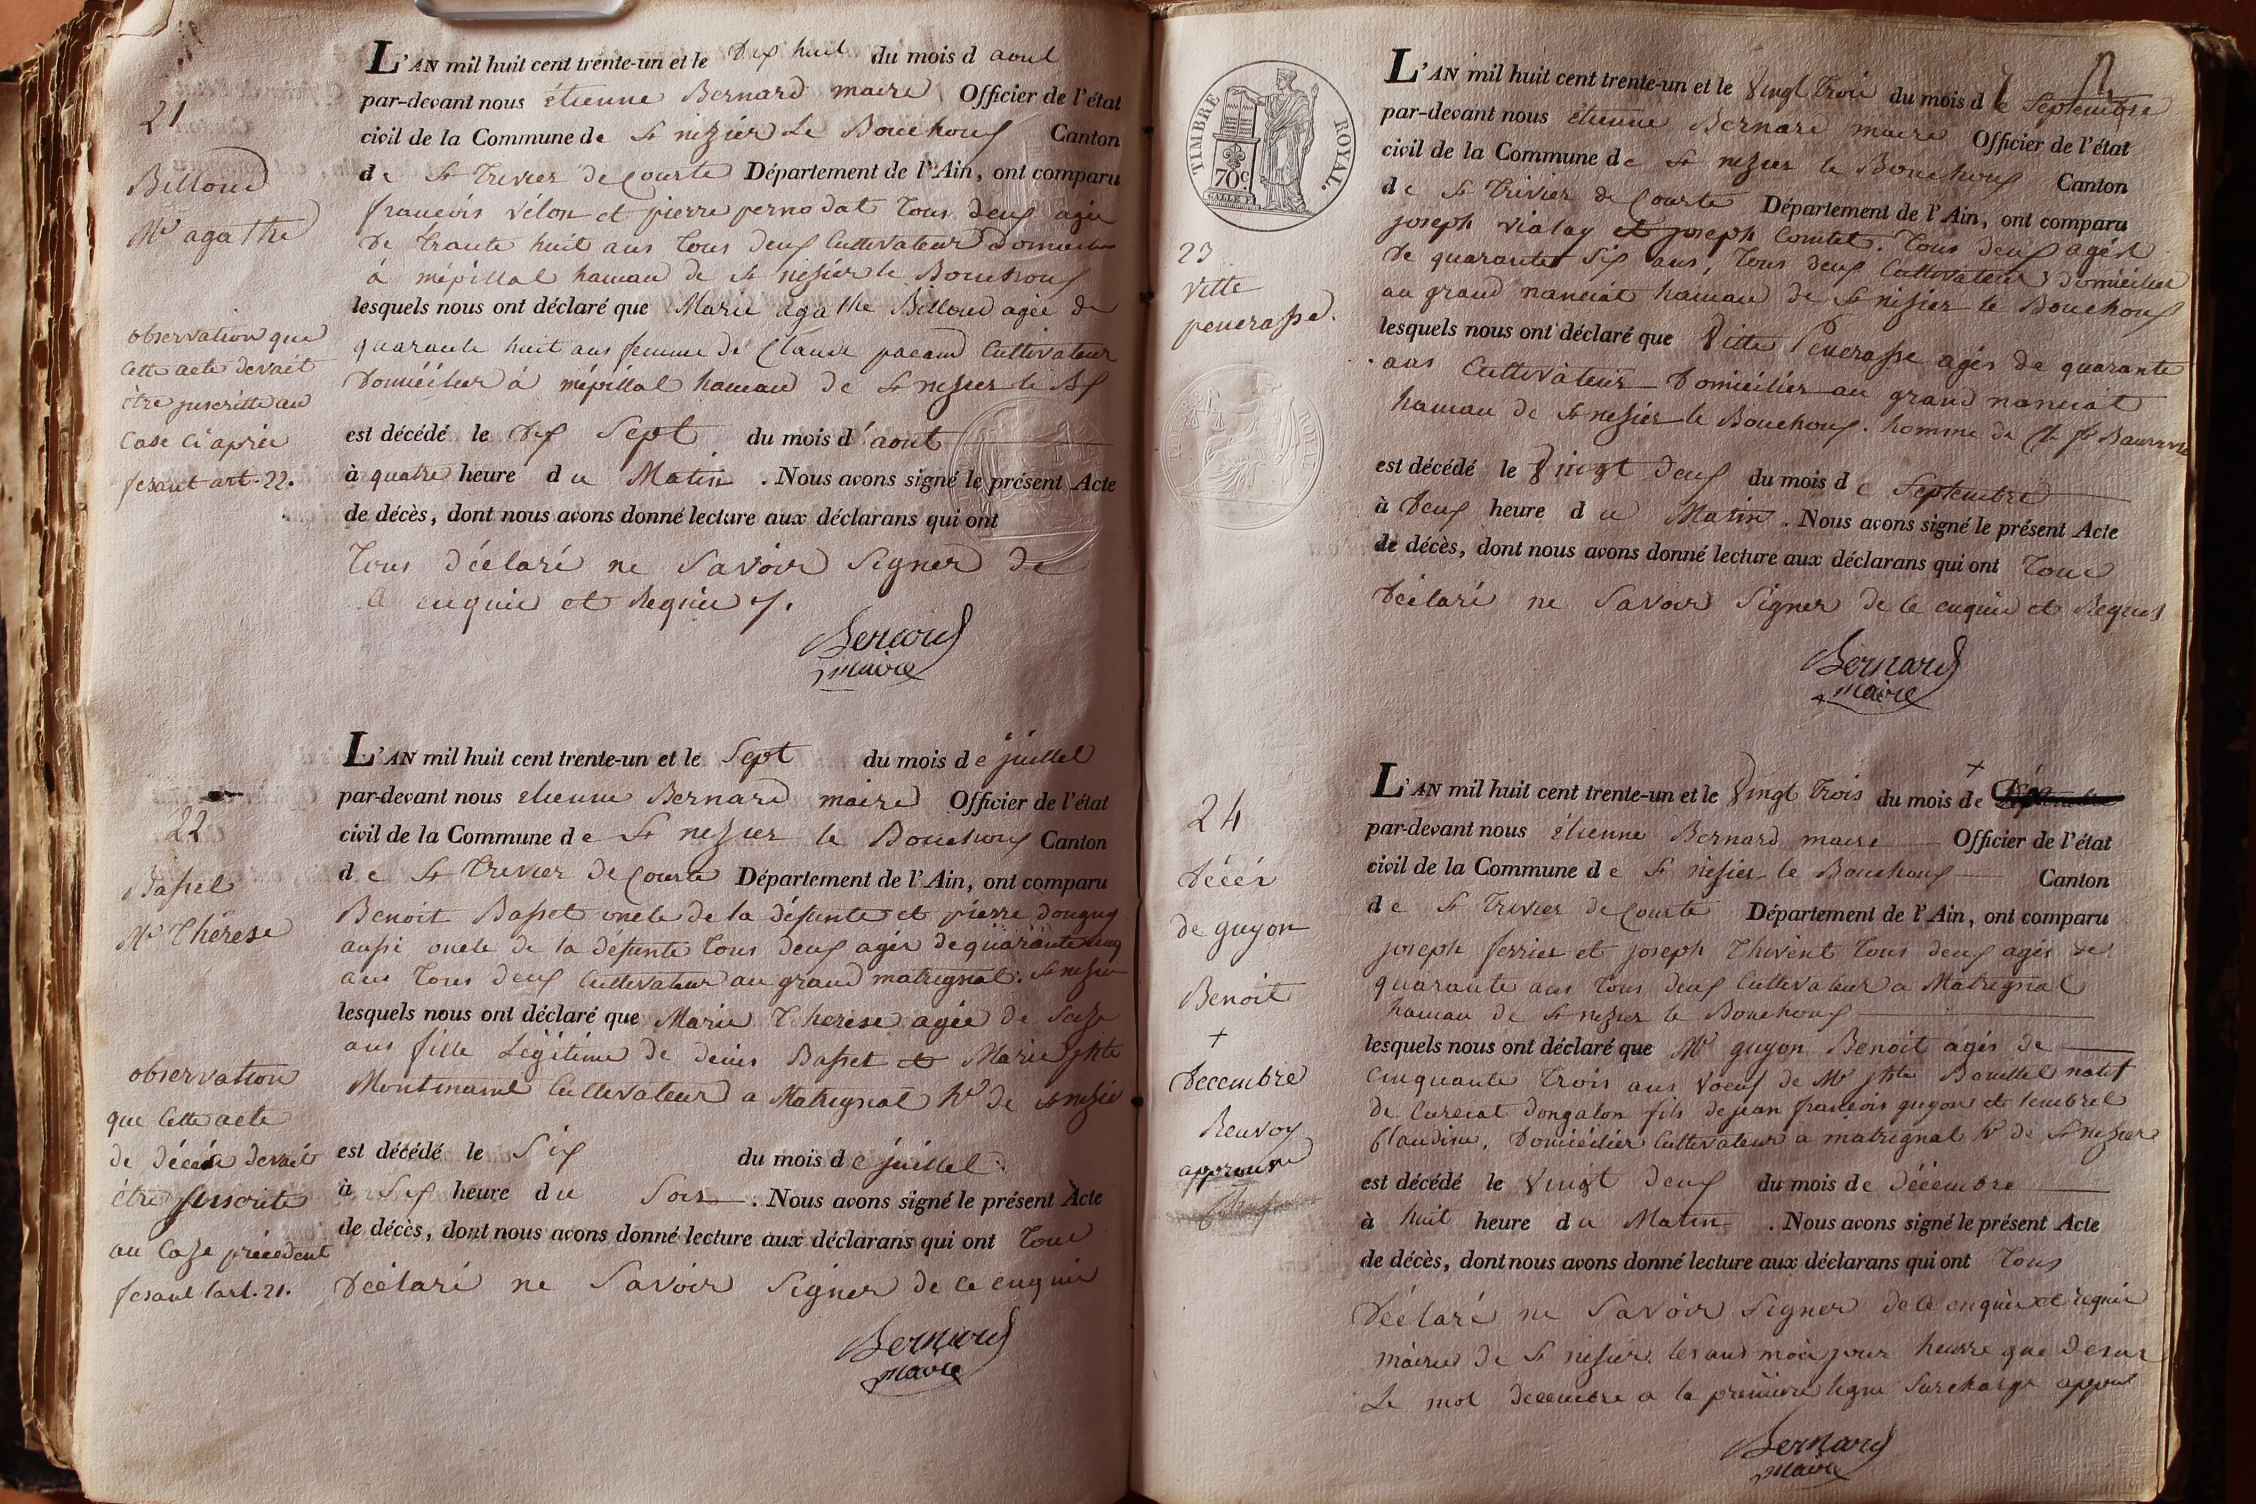 21
Billoud
Me agathe
observation que
cette acte devait
être juscritte au
Case ci après
fesant art. 22.
L'AN mil huit cent trente-un et le Dix huit du mois d aout
par-devant nous étienne Bernard maire Officier de l'état
civil de la Commune de St nezier Le Bouchoux Canton
de St Trivier de Courte Département de l'Ain, ont comparu
francois vélon et pierre pernodat Tous deux agée
de trante huit ans Tous deux Cultivateur Domicilier
à mépillat hameau de St nesier le Bouchoux
lesquels nous ont déclaré que Marie agathe Billoud agée de
quarante huit ans femme de Claude pacaud Cultivateur
Domicilier à mépillat hameau de St nesier le Bx
est décédé le Dix Sept du mois d'aout
à quatre heure du Matin. Nous avons signé le présent Acte
de décès, dont nous avons donné lecture aux déclarans qui ont
Tous déclaré ne Savoir Signer de
ce enquie et Requie
Bernard
maire
22
Basset
Me Thérèse
observation
que Cette acte
de décée devait
être juscrite
au Case précédent
fesant l'art. 21.
L'AN mil huit cent trente-un et le Sept du mois de juillet
par-devant nous etienne Bernard maire Officier de l'état
civil de la Commune de St nezier le Bouchoux Canton
de St Trivier de Courte Département de l'Ain, ont comparu
Benoit Basset oncle de la défunte et pierre douguy
aussi oncle de la défunte Tous deux agée de quarante cinq
ans Tous deux Cultivateur au grand matregnat. St nesier
lesquels nous ont déclaré que Marie Thérèse agée de Seize
ans fille Légitime de denis Basset et Marie jphte
Cultivateur a Matregnat hu de St nesier
est décédé le Six du mois de juillet
à Six heure du Soir. Nous avons signé le présent Acte
de décès, dont nous avons donné lecture aux déclarans qui ont Tous
Déclaré ne Savoir Signer de ce enquie
Bernard
maire
TIMBRE ROYAL.
70c.
23
Vitte
peucrasse.
L'AN mil huit cent trente-un et le Vingt Trois du mois de Septembre
par-devant nous étienne Bernard maire Officier de l'état
civil de la Commune de St nezier le Bouchoux Canton
de St Trivier de Courte Département de l'Ain, ont comparu
joseph vialay et joseph Comtet. Tous deux agés
de quarante Six ans, Tous deux Cultivateur Domicilier
au grand nanciat hameau de St nisier le Bouchoux
lesquels nous ont déclaré que Vitte Peucrasse agés de quarante
ans Cultivateur Domicilier au grand nanciat
hameau de St nesier le Bouchoux. homme de
est décédé le Vingt deux du mois de Septembre
à Deux heure du Matin. Nous avons signé le présent Acte
de décès, dont nous avons donné lecture aux déclarans qui ont Tous
Déclaré ne Savoir Signer de ce enquie et Requis
Bernard
maire
24
Décés
de guyon
Benoit
+
Decembre
Renvoy
approuve
L'AN mil huit cent trente-un et le Vingt Trois du mois de +
par-devant nous étienne Bernard maire Officier de l'état
civil de la Commune de St nesier le Bouchoux Canton
de St Trivier de Courte Département de l'Ain, ont comparu
joseph ferrier et joseph Thivent Tous deux agés de
quarante ans Tous deux Cultivateur a Matregnat
hameau de St nezier le Bouchoux
lesquels nous ont déclaré que Mr guyon Benoit agés de
Cinquante Trois ans Voeuf de Me jphte Bouillet natif
de Curciat dongalon fils de jean francois guyon et
Claudine, Domicilier Cultivateur a matregnat hu de St nezier
est décédé le Vingt deux du mois de Décembre
à huit heure du Matin. Nous avons signé le présent Acte
de décès, dont nous avons donné lecture aux déclarans qui ont Tous
Déclaré ne Savoir Signer de ce enquie et requie
mairie de St nesier les ans mois jour heurre que desur
Le mot decembre a la première ligne Surcharge
Bernard
maire